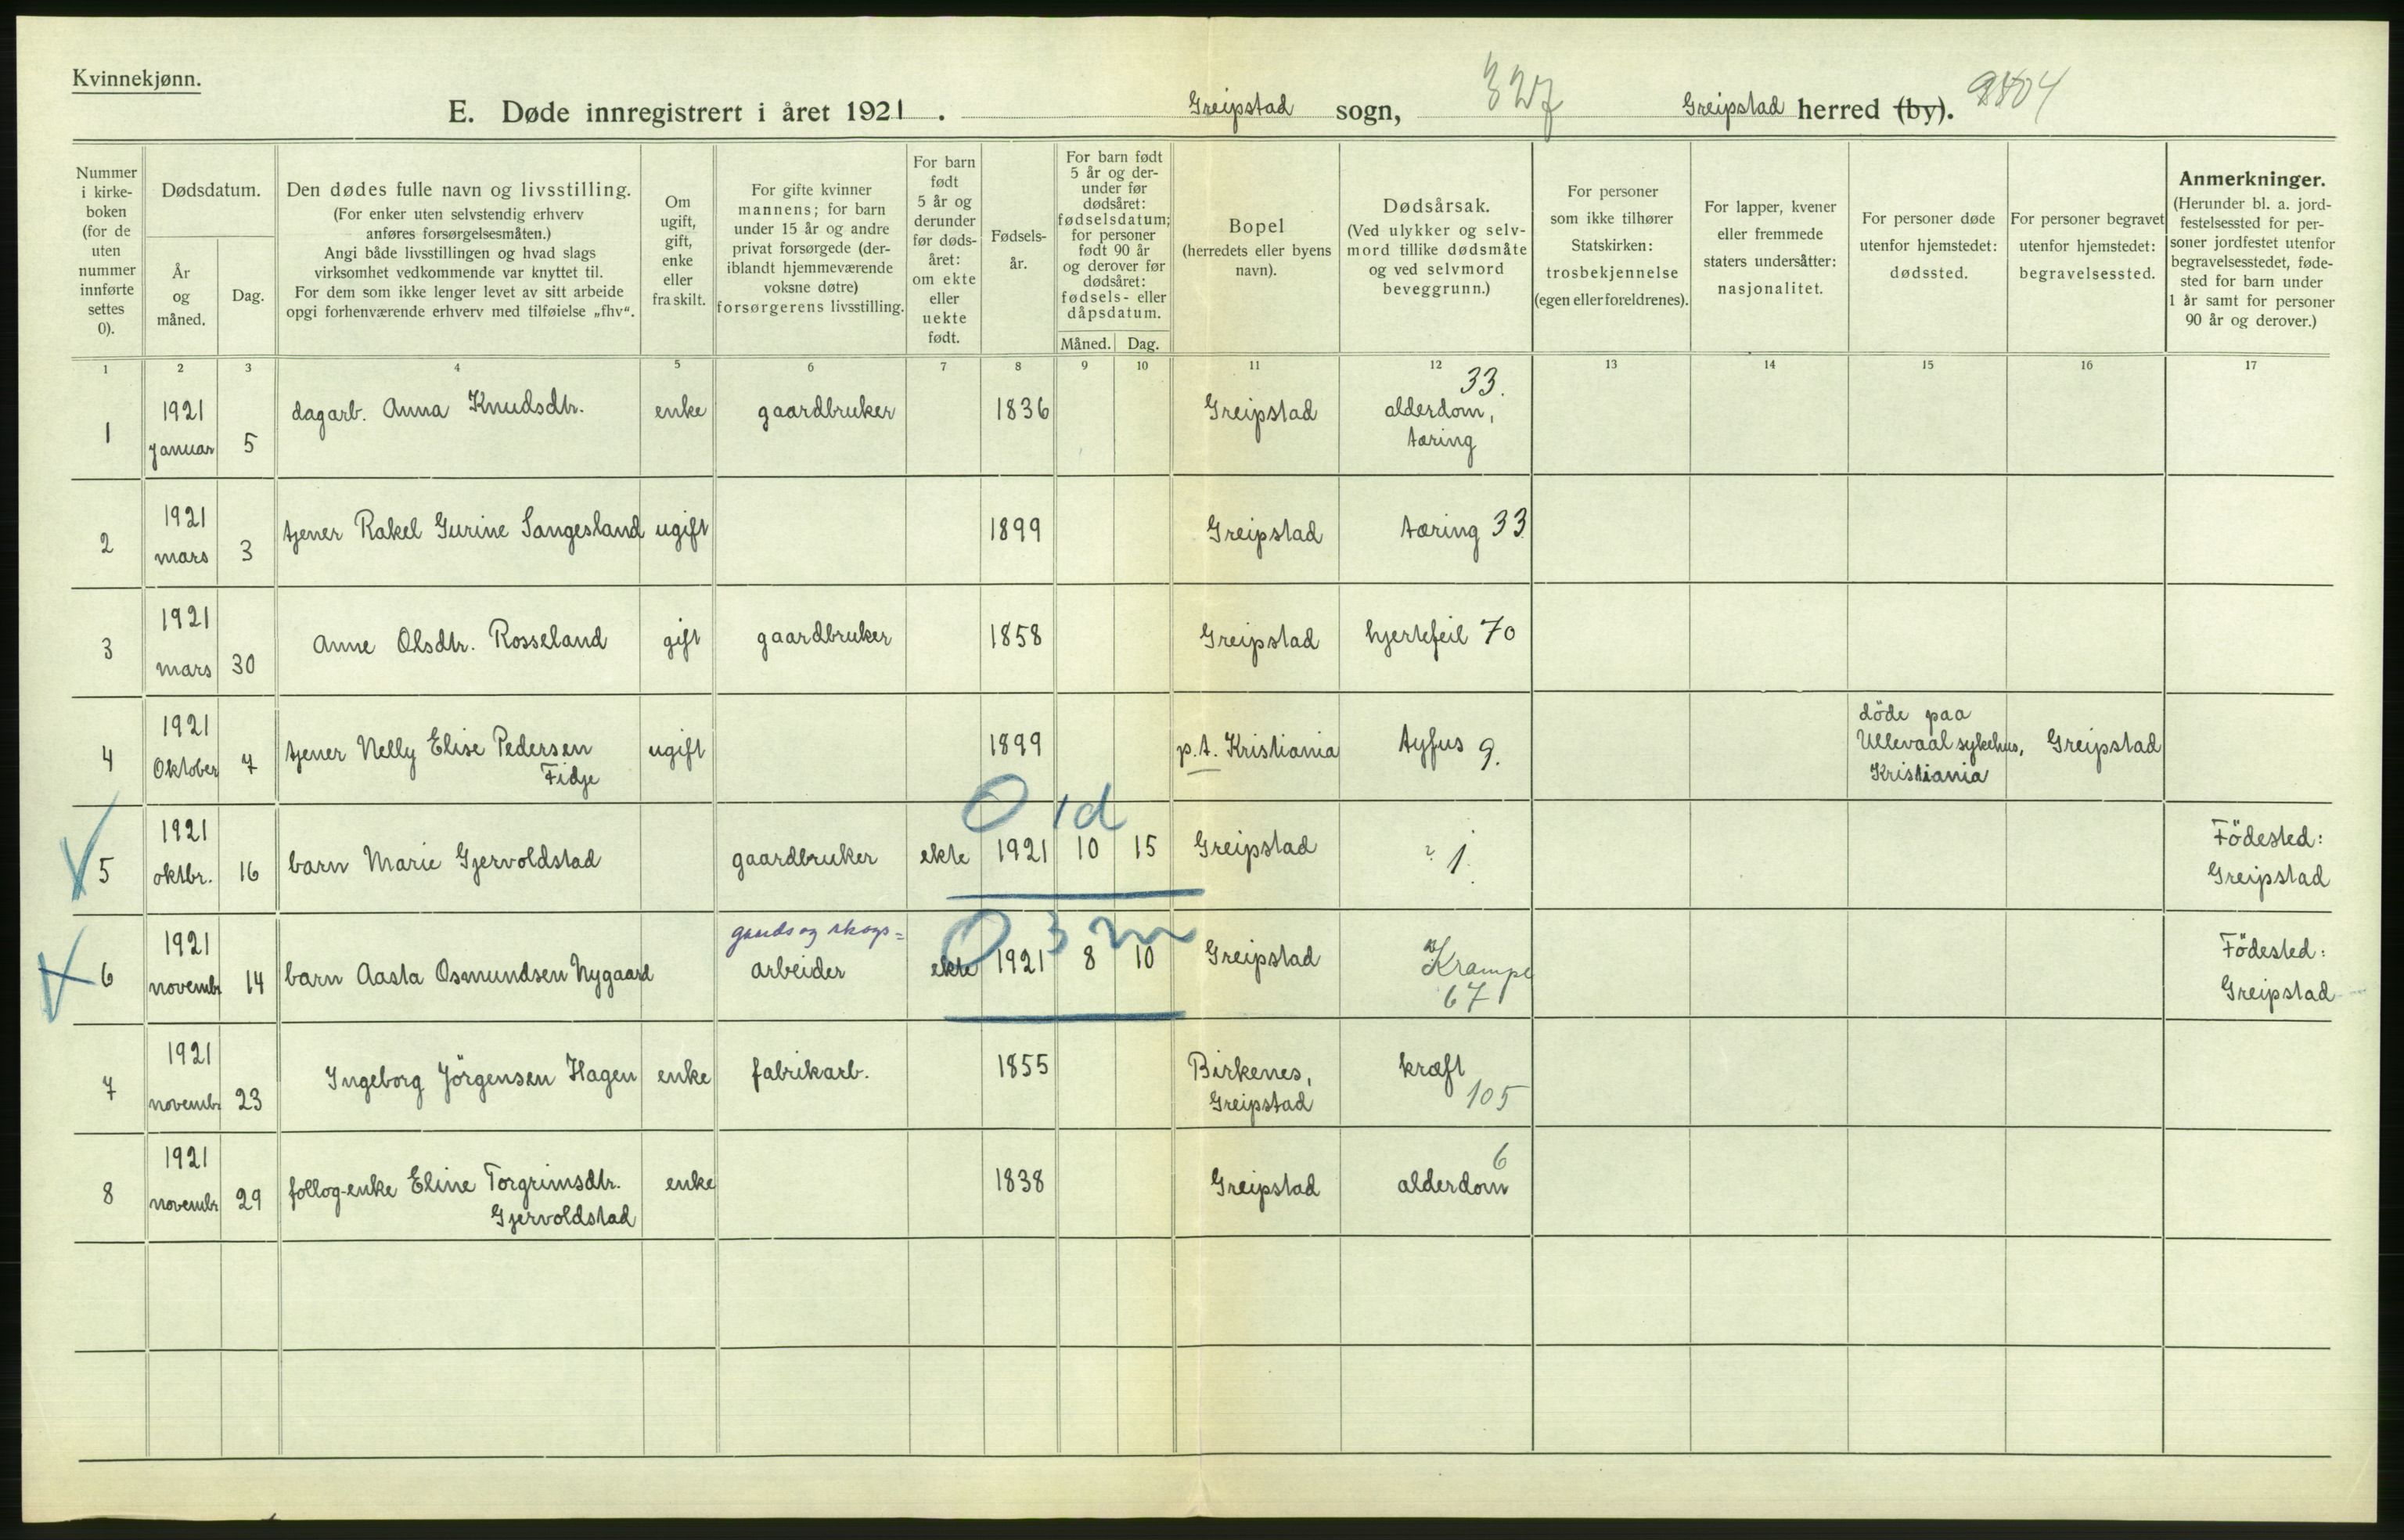 Kvinnekjønn.
E. Døde innregistrert i året 1921. Greipstad sogn, 327 Greipstad herred (by).
Nummer i kirke- boken (for de uten nummer innførte settes 0).
Dødsdatum.
År og måned.
Dag.
Den dødes fulle navn og livsstilling.
(For enker uten selvstendig erhverv
anføres forsørgelsesmåten.)
Angi både livsstillingen og hvad slags
virksomhet vedkommende var knyttet til.
For dem som ikke lenger levet av sitt arbeide
opgi forhenværende erhverv med tilføielse „fhv“.
Om
ugift,
gift,
enke
eller
fraskilt.
For gifte kvinner
mannens; for barn
under 15 år og andre
privat forsørgede (der-
iblandt hjemmeværende
voksne døtre)
forsørgerens livsstilling.
For barn
født
5 år og
derunder
før døds-
året:
om ekte
eller
uekte
født.
Fødsels-
år.
For barn født
5 år og der-
under før
dødsåret:
fødselsdatum;
for personer
født 90 år
og derover før
dødsåret:
fødsels- eller
dåpsdatum.
Måned. Dag.
Bopel
(herredets eller byens
navn).
Dødsårsak.
(Ved ulykker og selv-
mord tillike dødsmåte
og ved selvmord
beveggrunn.)
For personer
som ikke tilhører
Statskirken:
trosbekjennelse
(egen eller foreldrenes).
For lapper, kvener
eller fremmede
staters undersåtter:
nasjonalitet.
For personer døde
utenfor hjemstedet:
dødssted.
For personer begravet
utenfor hjemstedet:
begravelsessted.
Anmerkninger.
(Herunder bl. a. jord-
festelsessted for per-
soner jordfestet utenfor
begravelsesstedet, føde-
sted for barn under
1 år samt for personer
90 år og derover.)
1 2 3 4 5 6 7 8 9 10 11 12 13 14 15 16 17
1 1921 januar 5 dagarb. Anna Knudsdtr. enke gaardbruker 1836 Greipstad alderdom, tæring 33.
2 1921 mars 3 tjener Rakel Gurine Sangesland ugift 1899 Greipstad tæring 33
3 1921 mars 30 Anne Olsdtr. Rosseland gift gaardbruker 1858 Greipstad hjertefeil 70
4 1921 Oktober 7 tjener Nelly Elise Pedersen Fidje ugift 1899 p.t. Kristiania tyfus 9. döde paa Ullevaal sykehus, Kristiania Greipstad
0 1d
5 1921 oktbr. 16 barn Marie Gjervoldstad gaardbruker ekte 1921 10 15 Greipstad ? 1. Födested: Greipstad
0 3 m
6 1921 novembr 14 barn Aasta Osmundsen Nygaard gaards og skogs= arbeider ekte 1921 8 10 Greipstad Krampe 67 Födested: Greipstad
7 1921 novembr 23 Ingeborg Jörgensen Hagen enke fabrikarb. 1855 Birkenes, Greipstad kræft 105
8 1921 novembr 29 follog-enke Eline Torgrimsdtr. Gjervoldstad enke 1838 Greipstad alderdom 6